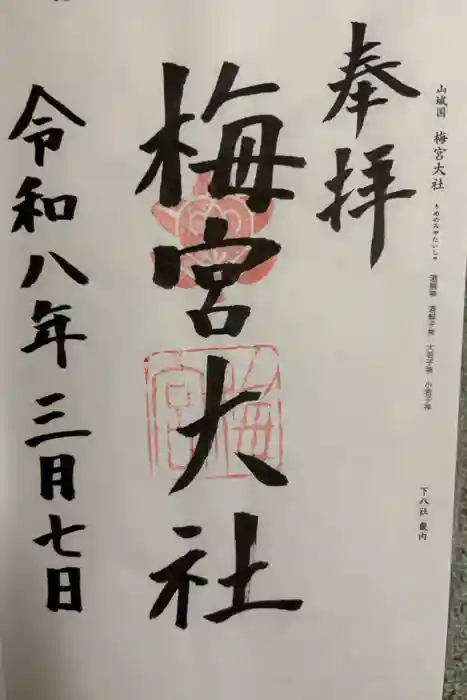 山城国 梅宮大社
うめのみやたいしゃ
酒解神 酒解子神 大若子神 小若子神
下八社 畿内
奉拝
梅宮大社
梅宮
令和八年三月七日